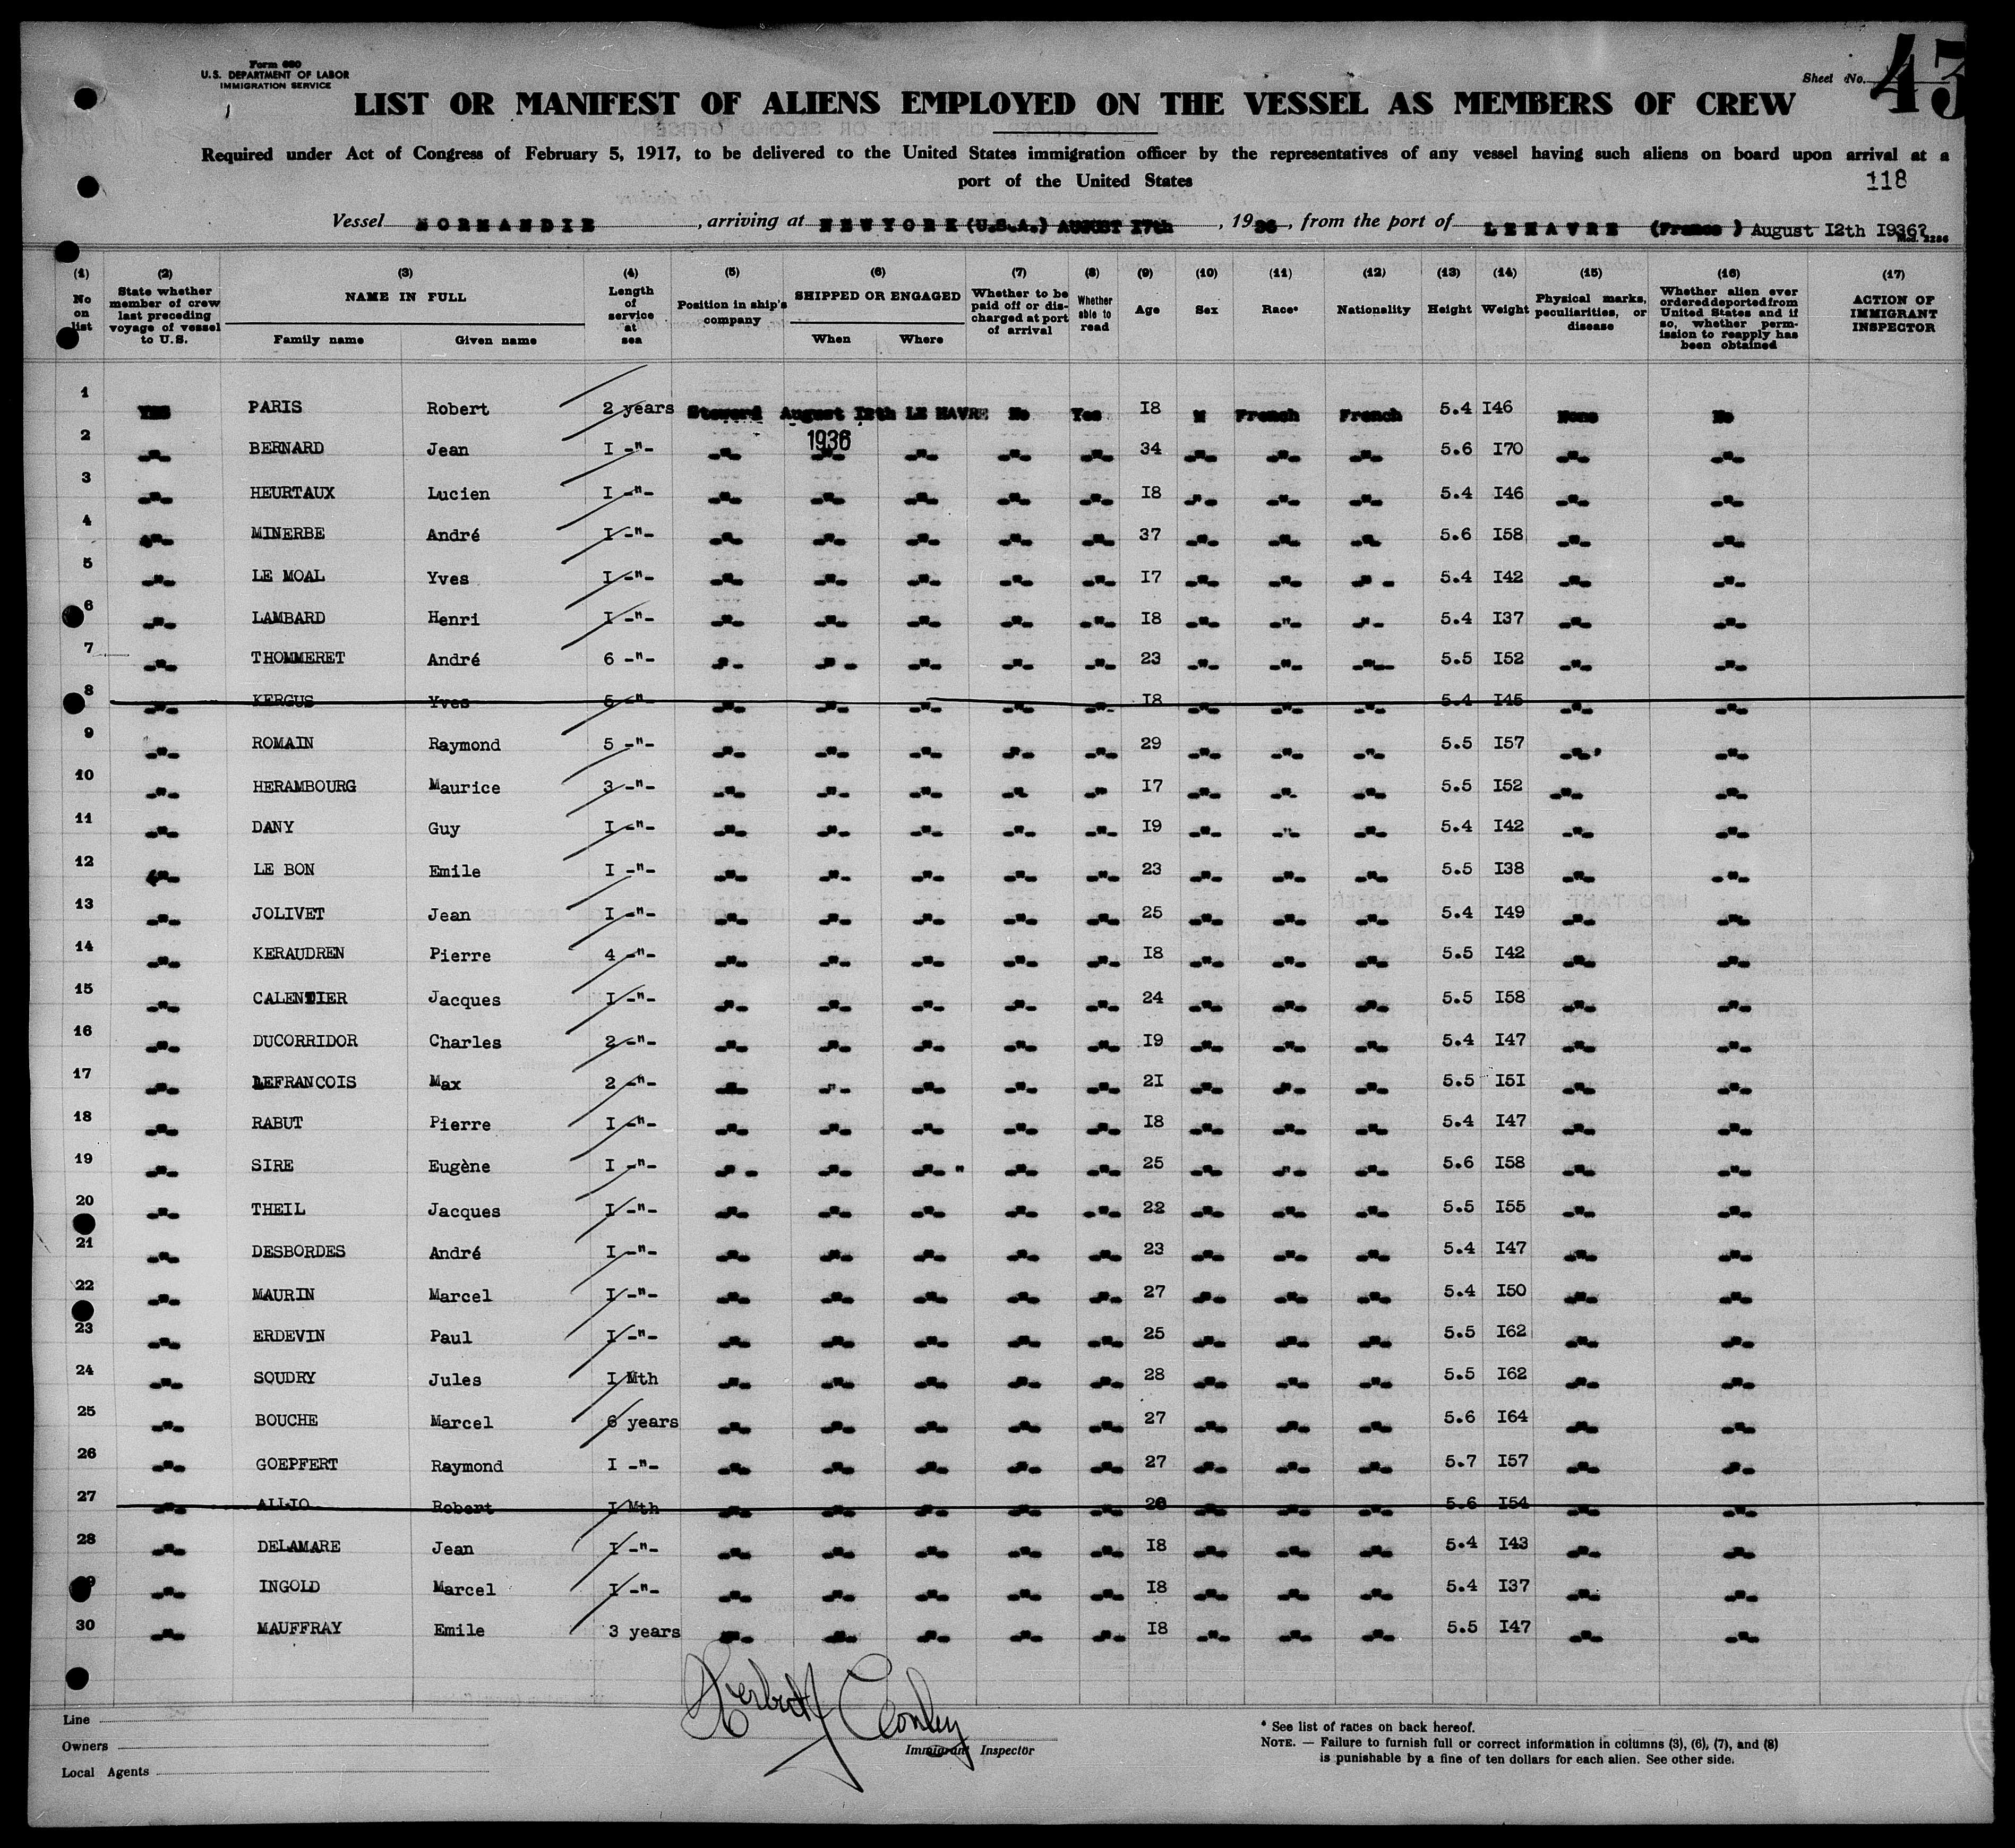 Form 680
U.S. DEPARTMENT OF LABOR
IMMIGRATION SERVICE
Sheet No. 43
LIST OR MANIFEST OF ALIENS EMPLOYED ON THE VESSEL AS MEMBERS OF CREW
Required under Act of Congress of February 5, 1917, to be delivered to the United States immigration officer by the representatives of any vessel having such aliens on board upon arrival at a
port of the United States
118
Vessel NORMANDIE, arriving at NEW YORK (U.S.A.) AUGUST 17th, 1936, from the port of LE HAVRE (France) August I2th I936?
(1) No on list
(2) State whether member of crew last preceding voyage of vessel to U.S.
(3) NAME IN FULL Family name Given name
(4) Length of service at sea
(5) Position in ship's company
(6) SHIPPED OR ENGAGED When Where
(7) Whether to be paid off or discharged at port of arrival
(8) Whether able to read
(9) Age
(10) Sex
(11) Race*
(12) Nationality
(13) Height
(14) Weight
(15) Physical marks, peculiarities, or disease
(16) Whether alien ever ordered deported from United States and if so, whether permission to reapply has been obtained
(17) ACTION OF IMMIGRANT INSPECTOR
1 YES PARIS Robert 2 years Steward August I2th 1936 LE HAVRE No Yes I8 M French French 5.4 I46 None No
2 -"- BERNARD Jean I -"- -"- -"- -"- -"- -"- 34 -"- -"- -"- 5.6 I70 -"- -"-
3 -"- HEURTAUX Lucien I -"- -"- -"- -"- -"- -"- I8 -"- -"- -"- 5.4 I46 -"- -"-
4 -"- MINERBE André I -"- -"- -"- -"- -"- -"- 37 -"- -"- -"- 5.6 I58 -"- -"-
5 -"- LE MOAL Yves I -"- -"- -"- -"- -"- -"- I7 -"- -"- -"- 5.4 I42 -"- -"-
6 -"- LAMBARD Henri I -"- -"- -"- -"- -"- -"- I8 -"- -"- -"- 5.4 I37 -"- -"-
7 -"- THOMMERET André 6 -"- -"- -"- -"- -"- -"- 23 -"- -"- -"- 5.5 I52 -"- -"-
8 -"- KERGUS Yves 5 -"- -"- -"- -"- -"- -"- I8 -"- -"- -"- 5.4 I45 -"- -"-
9 -"- ROMAIN Raymond 5 -"- -"- -"- -"- -"- -"- 29 -"- -"- -"- 5.5 I57 -"- -"-
10 -"- HERAMBOURG Maurice 3 -"- -"- -"- -"- -"- -"- I7 -"- -"- -"- 5.5 I52 -"- -"-
11 -"- DANY Guy I -"- -"- -"- -"- -"- -"- I9 -"- -"- -"- 5.4 I42 -"- -"-
12 -"- LE BON Emile I -"- -"- -"- -"- -"- -"- 23 -"- -"- -"- 5.5 I38 -"- -"-
13 -"- JOLIVET Jean I -"- -"- -"- -"- -"- -"- 25 -"- -"- -"- 5.4 I49 -"- -"-
14 -"- KERAUDREN Pierre 4 -"- -"- -"- -"- -"- -"- I8 -"- -"- -"- 5.5 I42 -"- -"-
15 -"- CALENTIER Jacques I -"- -"- -"- -"- -"- -"- 24 -"- -"- -"- 5.5 I58 -"- -"-
16 -"- DUCORRIDOR Charles 2 -"- -"- -"- -"- -"- -"- I9 -"- -"- -"- 5.4 I47 -"- -"-
17 -"- LEFRANCOIS Max 2 -"- -"- -"- -"- -"- -"- 2I -"- -"- -"- 5.5 I5I -"- -"-
18 -"- RABUT Pierre I -"- -"- -"- -"- -"- -"- I8 -"- -"- -"- 5.4 I47 -"- -"-
19 -"- SIRE Eugène I -"- -"- -"- -"- -"- -"- 25 -"- -"- -"- 5.6 I58 -"- -"-
20 -"- THEIL Jacques I -"- -"- -"- -"- -"- -"- 22 -"- -"- -"- 5.5 I55 -"- -"-
21 -"- DESBORDES André I -"- -"- -"- -"- -"- -"- 23 -"- -"- -"- 5.4 I47 -"- -"-
22 -"- MAURIN Marcel I -"- -"- -"- -"- -"- -"- 27 -"- -"- -"- 5.4 I50 -"- -"-
23 -"- ERDEVIN Paul I -"- -"- -"- -"- -"- -"- 25 -"- -"- -"- 5.5 I62 -"- -"-
24 -"- SOUDRY Jules I Mth -"- -"- -"- -"- -"- 28 -"- -"- -"- 5.5 I62 -"- -"-
25 -"- BOUCHE Marcel 6 years -"- -"- -"- -"- -"- 27 -"- -"- -"- 5.6 I64 -"- -"-
26 -"- GOEPFERT Raymond I -"- -"- -"- -"- -"- -"- 27 -"- -"- -"- 5.7 I57 -"- -"-
27 -"- ALLIO Robert I Mth -"- -"- -"- -"- -"- -"- -"- -"- 5.6 I54 -"- -"-
28 -"- DELAMARE Jean I -"- -"- -"- -"- -"- -"- I8 -"- -"- -"- 5.4 I43 -"- -"-
-"- INGOLD Marcel I -"- -"- -"- -"- -"- -"- I8 -"- -"- -"- 5.4 I37 -"- -"-
30 -"- MAUFFRAY Emile 3 years -"- -"- -"- -"- -"- I8 -"- -"- -"- 5.5 I47 -"- -"-
Line
Owners
Local Agents
Immigrant Inspector
* See list of races on back hereof.
NOTE. — Failure to furnish full or correct information in columns (3), (6), (7), and (8)
is punishable by a fine of ten dollars for each alien. See other side.